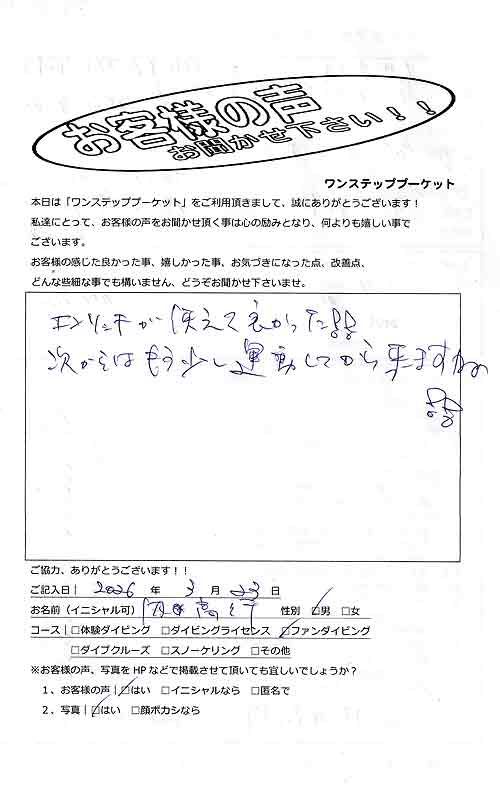 お客様の声
お聞かせ下さい！！
ワンステッププーケット
本日は「ワンステッププーケット」をご利用頂きまして、誠にありがとうございます！
私達にとって、お客様の声をお聞かせ頂く事は心の励みとなり、何よりも嬉しい事で
ございます。
お客様の感じた良かった事、嬉しかった事、お気づきになった点、改善点、
どんな些細な事でも構いません、どうぞお聞かせ下さいませ。
エンリッチが使えて良かった!!
次からはもう少し運動してから来ますね
!!
ご協力、ありがとうございます！！
ご記入日｜ 2026 年 3 月 23 日
お名前（イニシャル可） 性別 □男 □女
コース｜□体験ダイビング □ダイビングライセンス □ファンダイビング
□ダイブクルーズ □スノーケリング □その他
※お客様の声、写真を HP などで掲載させて頂いても宜しいでしょうか？
１、お客様の声｜□はい □イニシャルなら □匿名で
２、写真｜□はい □顔ボカシなら